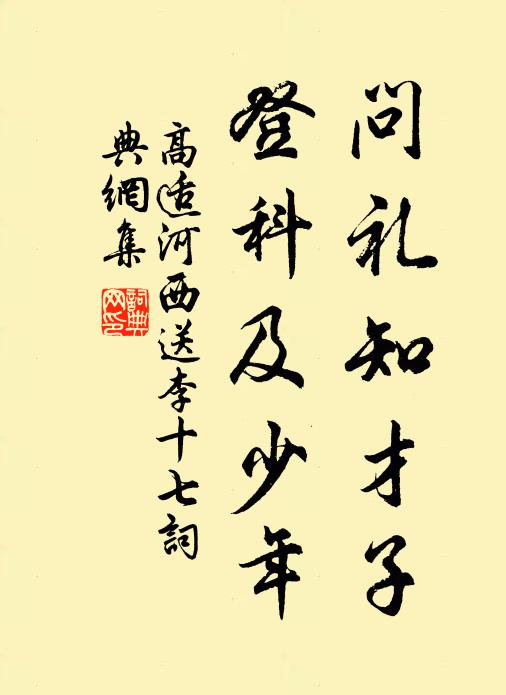 问礼知才子
登科及少年
高适河西送李十七詞
典網集
詞典網印